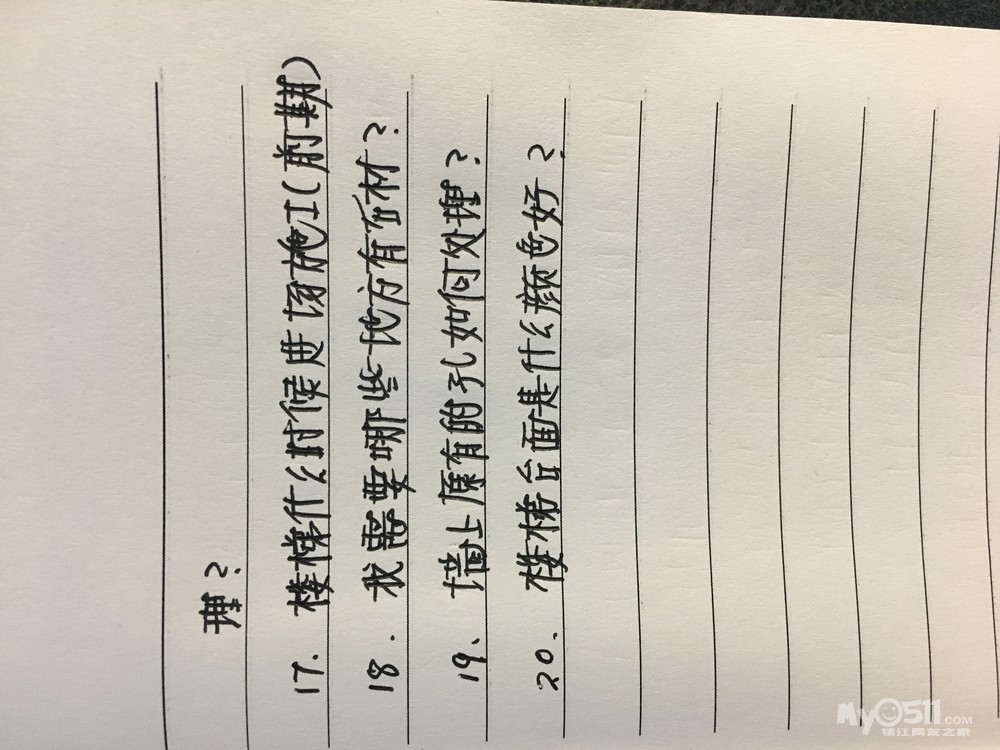 ?
17. 楼梯什么时候进场施工(前期)
18. 我需要哪些地方有石材?
19、墙上原有的孔如何处理?
20、楼梯台面是什么颜色好?
My0511.COM
镇江网友之家